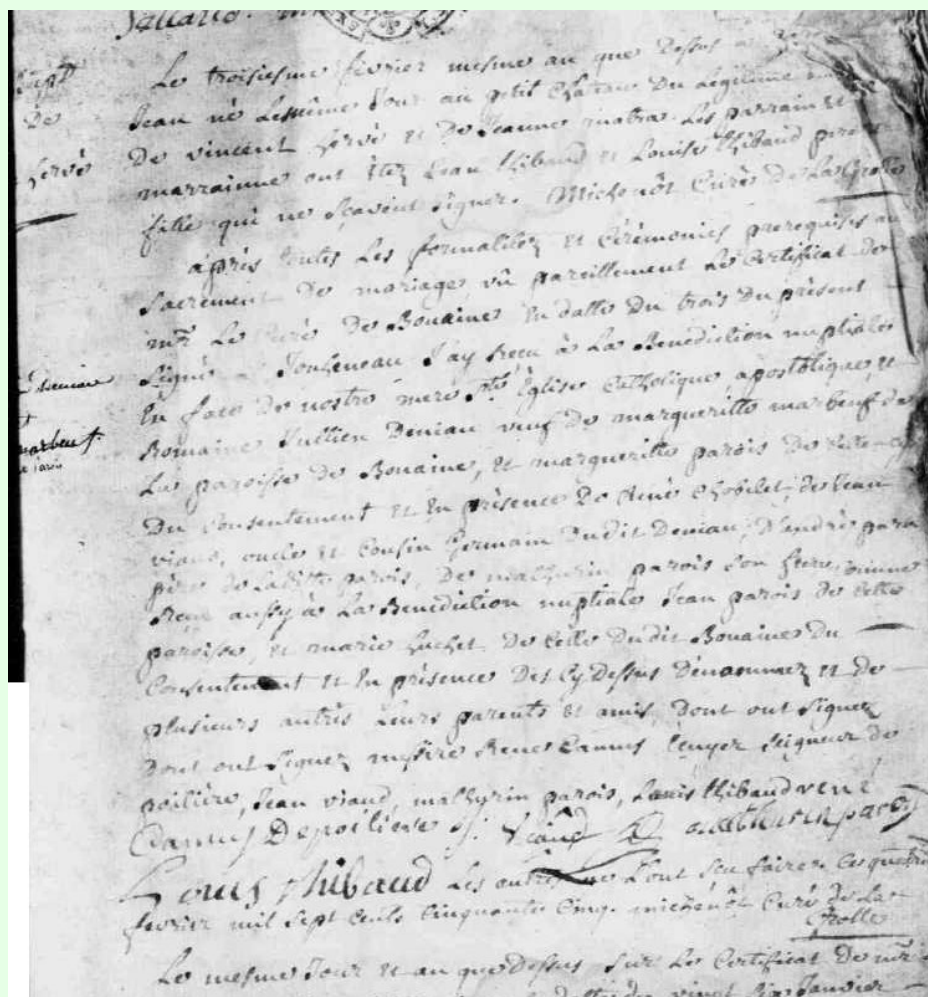 Le troisiesme février mesme an que Dessus a
Jean né Lemême Jour au petit Château Du
De vincent hervé et De Jeanne Les parrain et
hervé
marrainne ont étez Jean thibaud et Louise thibaud
fille qui ne Scavent Signer. Michenôt Curé De La Grolle
après toutes Les formalitez et Cérémonies prerequises au
Sacrement De mariage vû pareillement Le Certificat de
mr. Le Curé De Bouaine En datte Du trois Du présent
Signé Joüheneau J'ay receu à La Benediction nuptiale
En face De nostre mere Ste Église Catholique, apostolique, et
Romaine Jullien Deniau veuf de margueritte marbeuf de
marbeuf.
La paroisse de Bouaine, et margueritte parois De
Du Consentement et En présence De Aimé Chobelet, de Jean
viaud, oncle et Cousin Germain Dudit Deniau, D'andré
père de Laditte parois, De mathurin parois Son frere, comme
reçu aussy à La Benediction nuptiale Jean parois de Cette
paroisse, et marie huchet De Celle Dudit Bouaine Du
Consentement et En présence Des Cy Dessus Dénommez et de
plusieurs autres Leurs parents et amis, Dont ont Signez
Dont ont Signez messire Rene Camus Ecuyer Seigneur de
poiliére, Jean viaud, mathurin parois, Louis thibaud
Camus Depoiliere J. Viaud mathurin parois
Louis thibaud Les autres ne L'ont Sçu faire. Ce quatre
février mil Sept Cents Cinquante Cinq. michenôt Curé de La
Grolle
Le mesme Jour et an que Dessus Sur Le Certificat De mr.
vingt Six Janvier